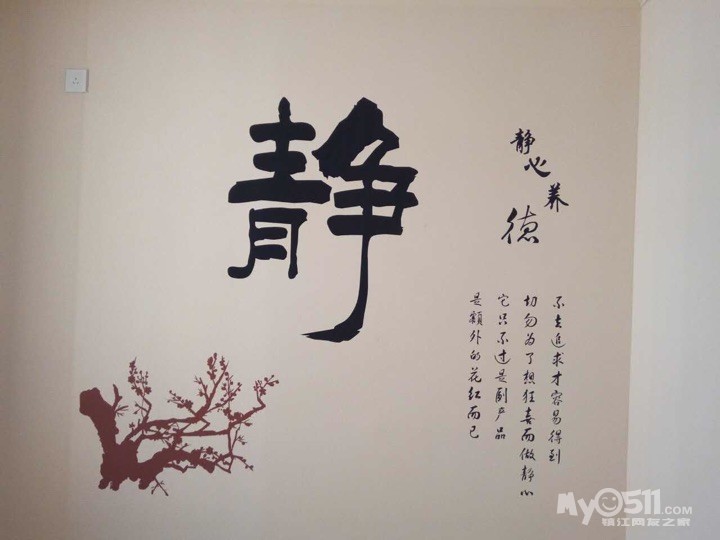 静
静心养德
不去追求才容易得到
切勿为了想狂喜而做静心
它只不过是副产品
是额外的花红而已
My0511.COM
镇江网友之家